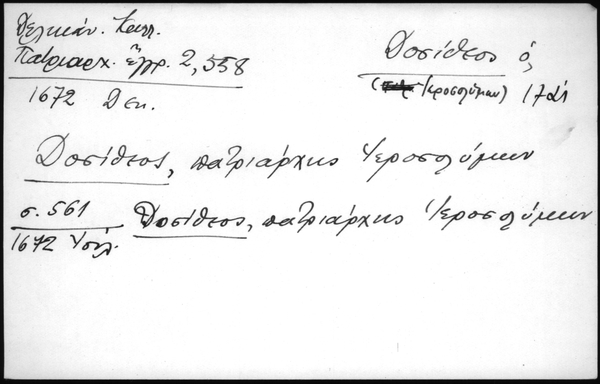 Δελικάν. Καλλ.
Πατριαρχ. ἔγγρ. 2, 558
Δοσίθεος ὁ,
(Ἱεροσολύμων) 17
1672 Δεκ.
Δοσίθεος, πατριάρχης Ἱεροσολύμων
σ. 561
1672 Ἰούλ. Δοσίθεος, πατριάρχης Ἱεροσολύμων